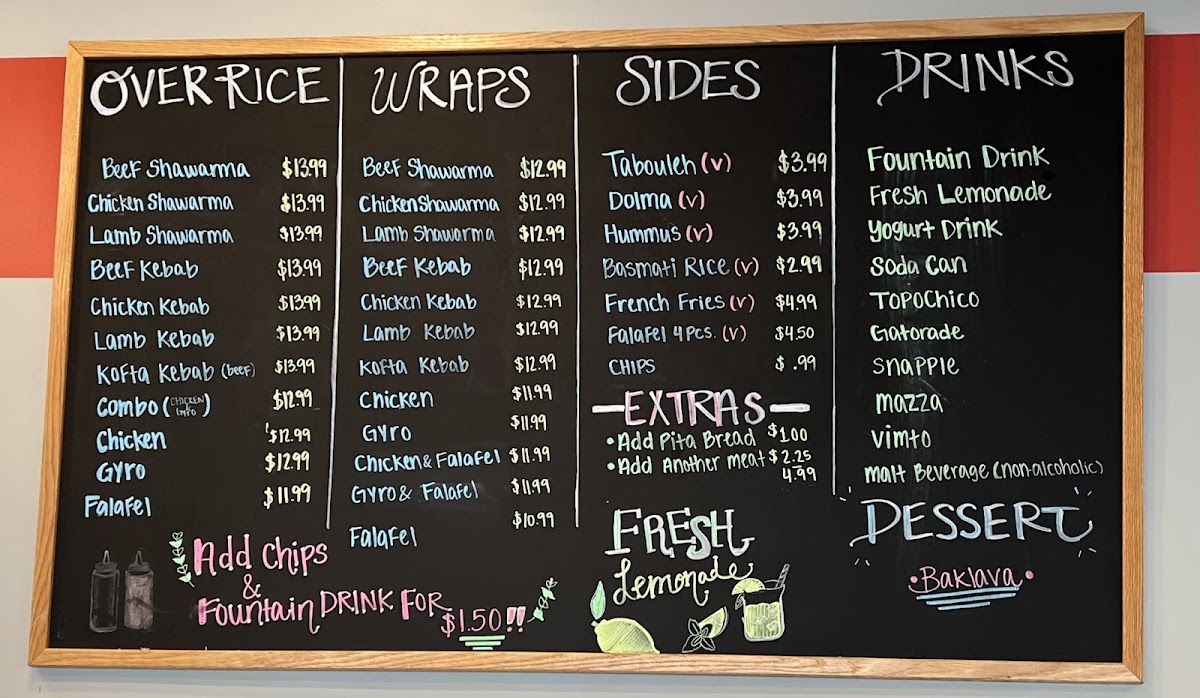 OVER RICE
Beef Shawarma $13.99
Chicken Shawarma $13.99
Lamb Shawarma $13.99
Beef Kebab $13.99
Chicken Kebab $13.99
Lamb Kebab $13.99
Kofta Kebab (beef) $13.99
Combo (CHICKEN & Gyro) $12.99
Chicken $12.99
Gyro $12.99
Falafel $11.99
Add Chips
&
Fountain DRINK FOR
$1.50!!
WRAPS
Beef Shawarma $12.99
Chicken Shawarma $12.99
Lamb Shawarma $12.99
Beef Kebab $12.99
Chicken Kebab $12.99
Lamb Kebab $12.99
Kofta Kebab $12.99
Chicken $11.99
Gyro $11.99
Chicken & Falafel $11.99
Gyro & Falafel $11.99
Falafel $10.99
SIDES
Tabouleh (v) $3.99
Dolma (v) $3.99
Hummus (v) $3.99
Basmati Rice (v) $2.99
French Fries (v) $4.99
Falafel 4 Pcs. (v) $4.50
CHIPS $ .99
EXTRAS
•Add Pita Bread $1.00
•Add Another meat $2.25
4.99
FRESH
Lemonade
DRINKS
Fountain Drink
Fresh Lemonade
Yogurt Drink
Soda Can
TOPOCHICO
Gatorade
Snapple
mazza
Vimto
malt Beverage (non-alcoholic)
DESSERT
•Baklava•